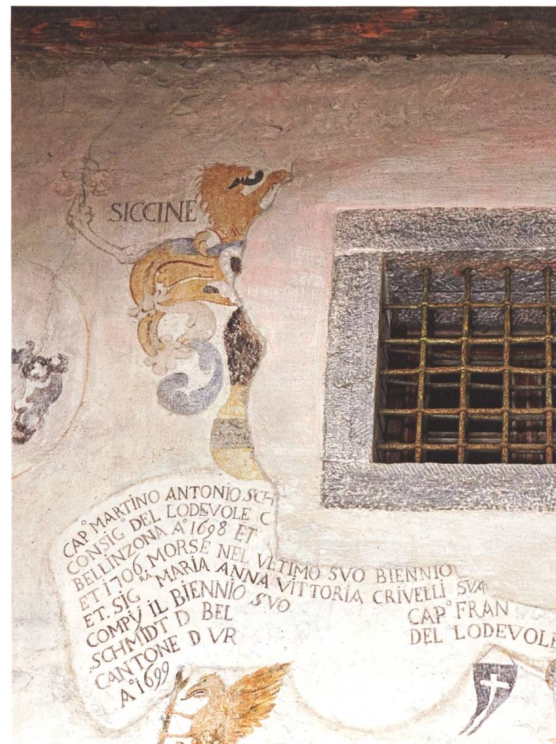 SICCINE
CAP.º MARTINO ANTONIO SCH
CONSIG.º DEL LODEVOLE C
BELLINZONA A.º 1698 ET
ET 1706, MORSE NEL VLTIMO SVO BIENNIO
ET. SIG.RA MARIA ANNA VITTORIA CRIVELLI SVA
COMPÙ IL BIENNIO SVO
SCHMIDT D BEL
CANTONE D VR
A.º 1699
CAP.º FRAN
DEL LODEVOLE